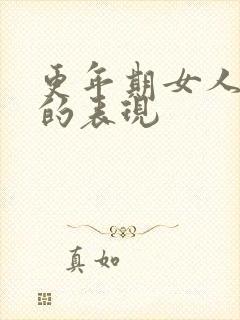 更年期女人
的表现
真如